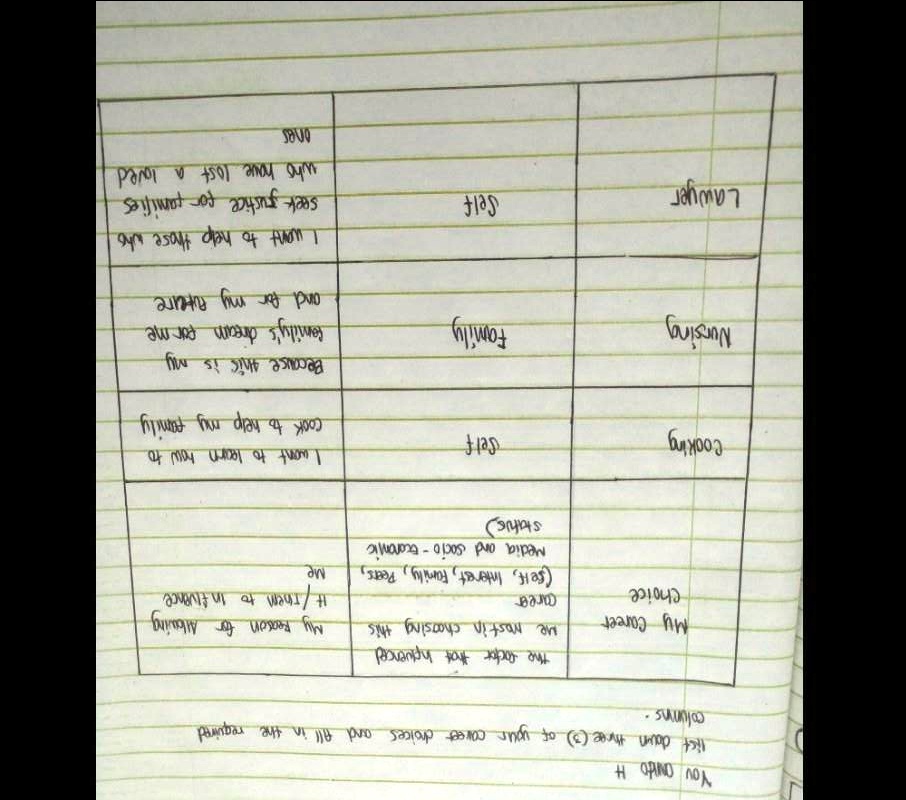 You cando it
list down three (3) of your career choices and fill in the required
columns.
My career
choice
the factor that Influenced
me most in choosing this
career
(self, Interest, Family, Peers,
Media and socio-Economic
status)
My Reason for Allowing
It / Them to Influence
Me
Cooking
Self
I want to learn how to
cook to help my family
Nursing
Family
Because this is my
family's dream for me
and for my future
Lawyer
Self
I want to help those who
seek justice for families
who have lost a loved
ones